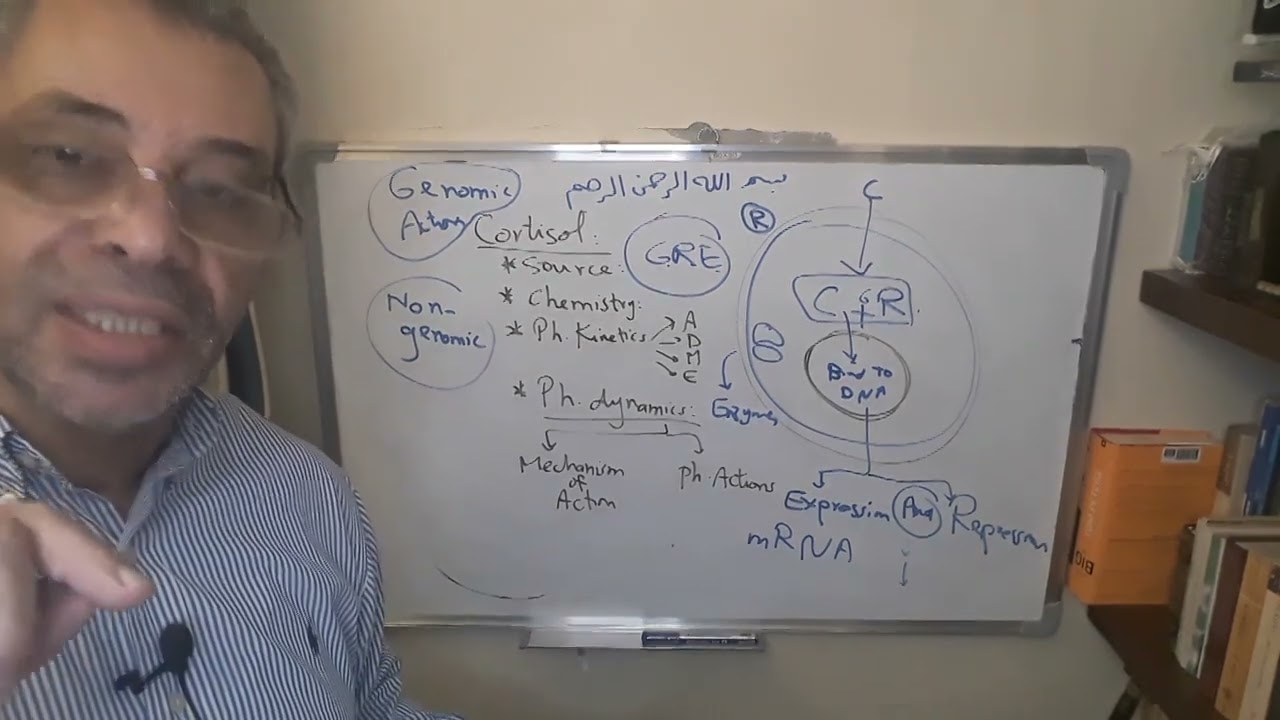 بسم الله الرحمن الرحيم
Genomic
Actions
Cortisol:
* Source:
* Chemistry:
* Ph. Kinetics
A
D
M
E
* Ph. dynamics:
Mechanism
of
Action
Ph. Actions
Non-
genomic
GRE
R
C
C GR
Bind To
DNA
Enzymes
Expression And Repression
mRNA
BIG